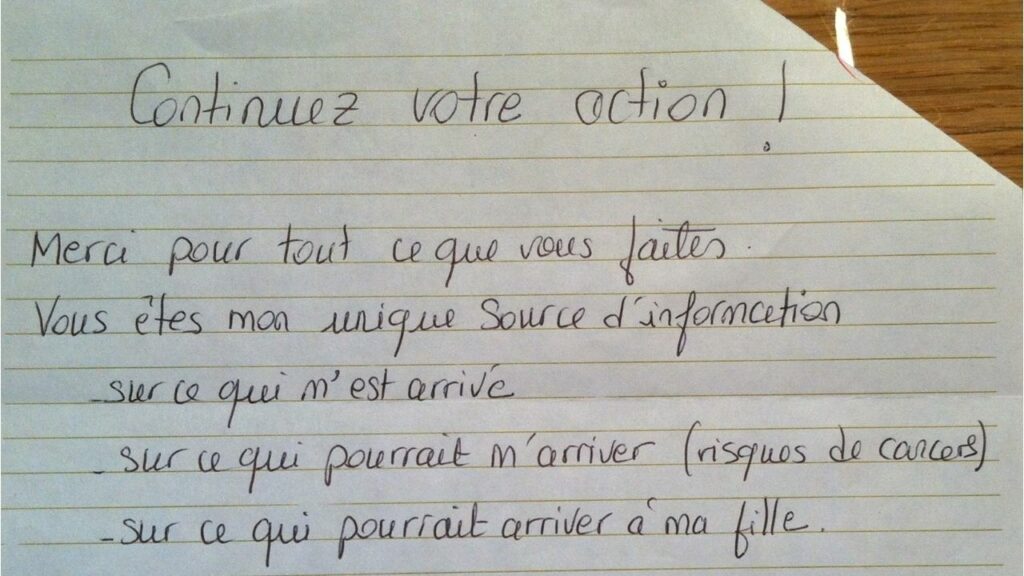 Continuez votre action !
Merci pour tout ce que vous faites.
Vous êtes mon unique source d'information
- sur ce qui m'est arrivé
- sur ce qui pourrait m'arriver (risques de cancers)
- sur ce qui pourrait arriver à ma fille.